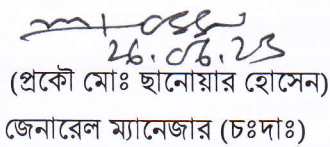 26.06.23
(প্রকৌ মোঃ ছানোয়ার হোসেন)
জেনারেল ম্যানেজার (চঃদাঃ)